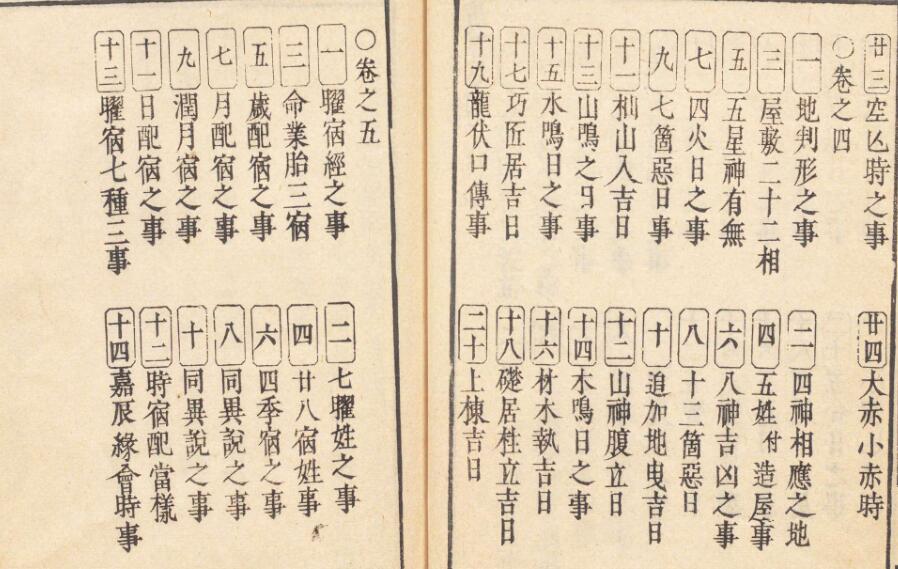 廿三 空亾時之事 廿四 大赤小赤時
○卷之四
一 地判形之事 二 四神相應之地
三 屋敷二十二相 四 五姓付造屋事
五 五星神有無 六 八神吉凶之事
七 四火日之事 八 十三箇惡日
九 七箇惡日事 十 追加地曳吉日
十一 杣山入吉日 十二 山神腹立日
十三 山鳴之日事 十四 木鳴日之事
十五 水鳴日之事 十六 材木執吉日
十七 巧匠居吉日 十八 礎居柱立吉日
十九 龍伏口傳事 二十 上棟吉日
○卷之五
一 曜宿經之事 二 七曜姓之事
三 命業胎三宿 四 廿八宿姓事
五 歲配宿之事 六 四季宿之事
七 月配宿之事 八 同異說之事
九 潤月宿之事 十 同異說之事
十一 日配宿之事 十二 時宿配當樣
十三 曜宿七種三事 十四 嘉辰緣會時事